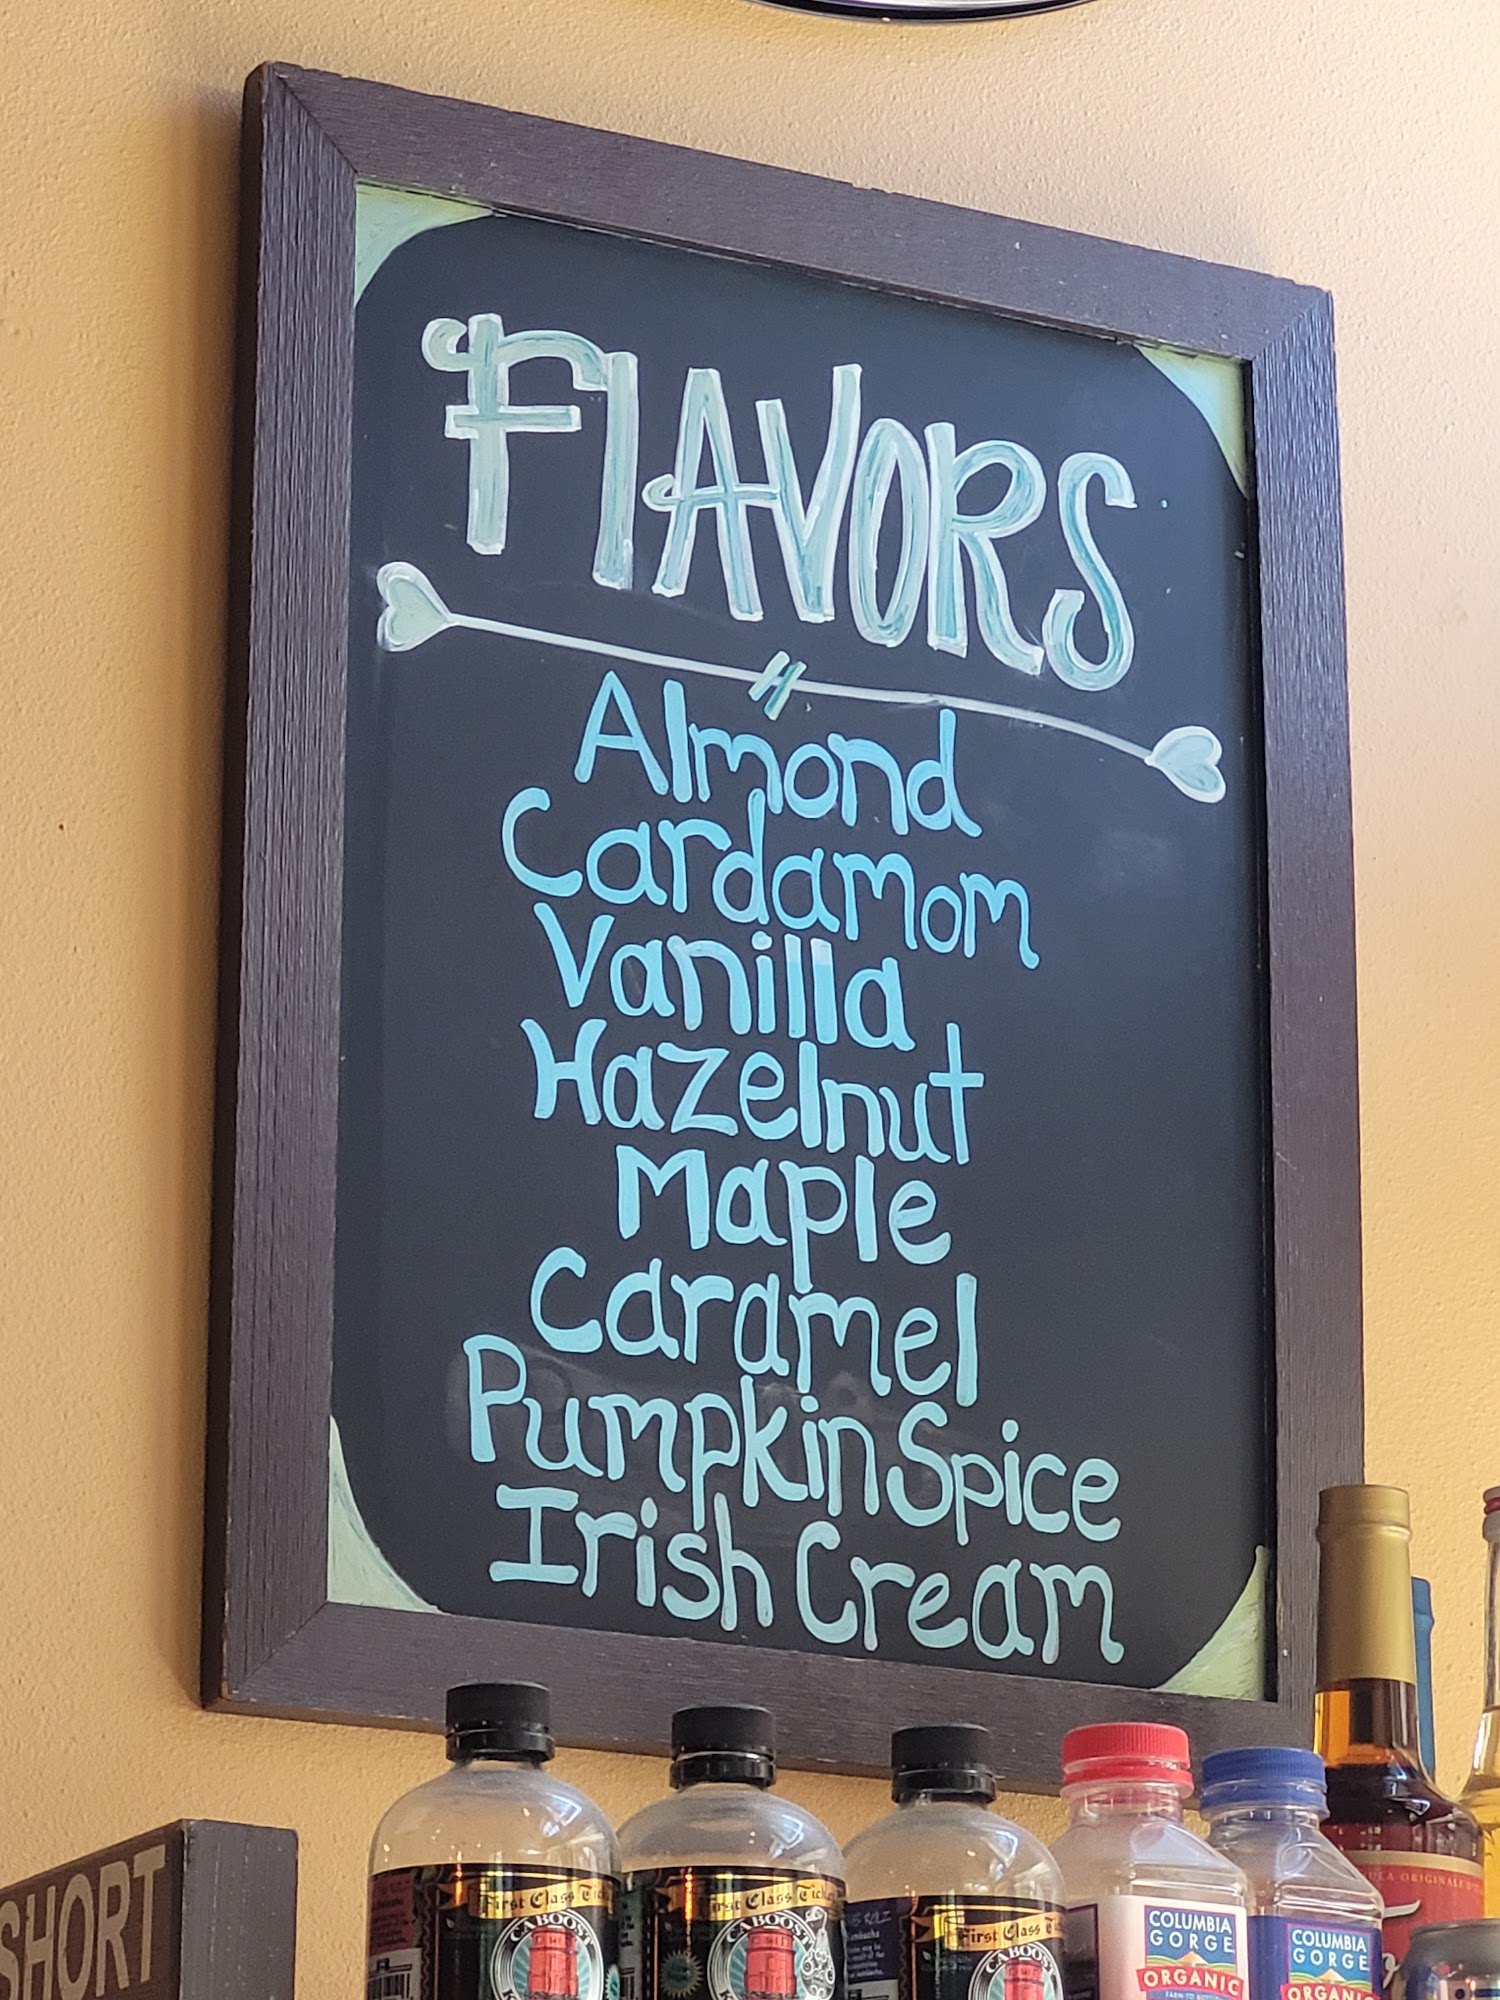 FlAVORS
Almond
Cardamom
Vanilla
Hazelnut
Maple
Caramel
Pumpkin Spice
Irish Cream
SHORT
First Class Ticket
CABOOSE
First Class Ticket
CABOOSE
First Class
CABOOSE
Kombucha
COLUMBIA
GORGE
ORGANIC
COLUMBIA
GORGE
ORGANIC
ORIGINALE